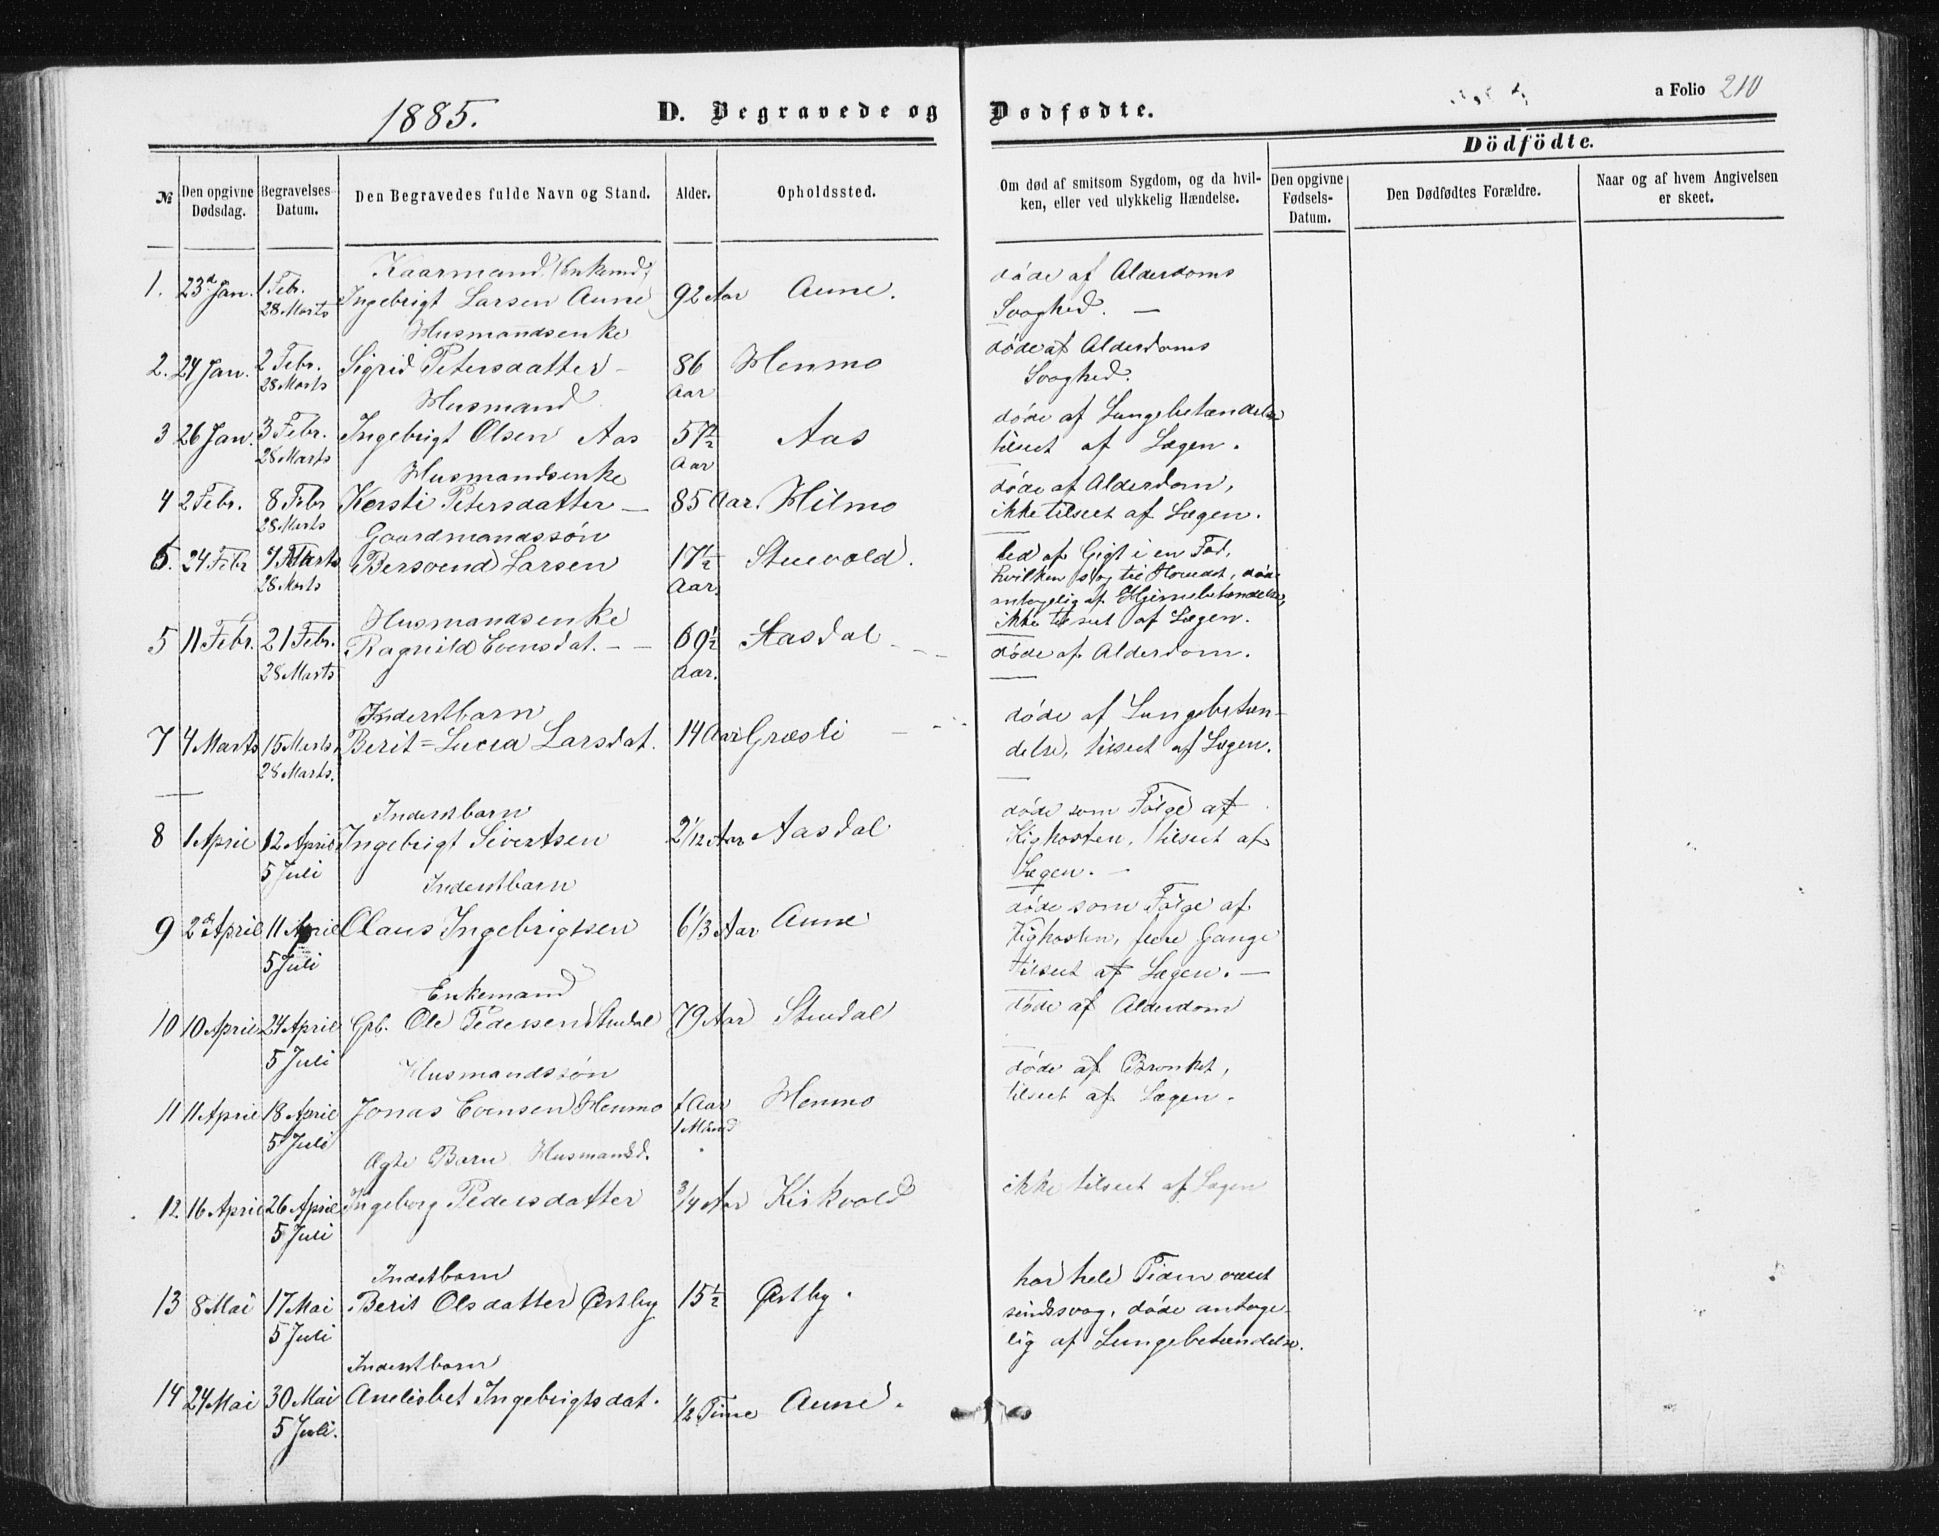 1885.
D. Begravede og Dodfodte.
a Folio 210
Dödfödte.
№
Den opgivne Dødsdag.
Begravelses-Datum.
Den Begravedes fulde Navn og Stand.
Alder.
Opholdssted.
Om død af smitsom Sygdom, og da hvilken, eller ved ulykkelig Hændelse.
Den opgivne Fødsels-Datum.
Den Dødfødtes Forældre.
Naar og af hvem Angivelsen er skeet.
Kaarmand (Enkemd)
1. 23d Jan. 1 Febr. Ingebrigt Larsen Aune 92 Aar Aune.
28 Marts
døde af Alderdoms
Svaghed. —
Husmandsenke
2. 24 Jan. 2 Febr. Sigrid Petersdatter – 86 Henmo
28 Marts Aar
døde af Alderdoms
Svaghed.
Husmand
3 26 Jan. 3 Febr. Ingebrigt Olsen Aas 57½ Aas
28 Marts Aar
døde af Lungebetændelse
tilseet af Lægen.
Husmandsenke
4 2 Febr. 8 Febr Kersti Petersdatter — 85 Aar. Hilmo
28 Marts
døde af Alderdom,
ikke tilseet af Lægen.
Gaardmandssøn
6. 24 Febr 7 Marts Bersvend Larsen 17½ Stuevold.
28 Marts Aar.
led af Gigt i en Fod,
hvilken slog til Hovedet, døde
antagelig af Hjernebetændelse,
ikke tilseet af Lægen.
Husmandsenke
5 11 Febr. 21 Febr. Ragnild Evensdat. – – 69½ Aasdal
28 Marts Aar.
døde af Alderdom.
Inderstbarn
7 4 Marts 15 Marts Berit=Lucia Larsdat. 14 Aar Græsli
28 Marts.
døde af Lungebetæn-
delse, tilseet af Lægen.
Inderstbarn
8 1 April 12 April Ingebrigt Sivertsen 2 1/12 Aar Aasdal
5 Juli
døde som Følge af
Kighosten, tilseet af
Lægen. –
Inderstbarn
9 2d April 11 April Olaus Ingebrigtsen 6 1/3 Aar Aune
5 Juli
døde som Følge af
Kighosten, flere Gange
tilseet af Lægen. —
Enkemand
10 10 April 24 April Grb. Ole Pedersen Stuedal 79 Aar Stuedal
5 Juli
døde af Alderdom
Husmandssøn
11 11 April 18 April Jonas Evensen Henmo 1 Aar Henmo
5 Juli 1 Maaned
døde af Bronket,
tilseet af Lægen.
Ægte Barn Husmandsd.
12. 16 April 26 April Ingeborg Pedersdatter 3/4 Aar Kirkvold
5 Juli
ikke tilseet af Lægen
Inderstbarn
13 8 Mai 17 Mai Berit Olsdatter Østby 15½ Østby.
5 Juli
har hele Tiden været
sindssvag, døde antage-
lig af Lungebetændelse.
Inderstbarn
14 24 Mai 30 Mai Anelisbet Ingebrigtsdat. ½ Time Aune.
5 Juli.